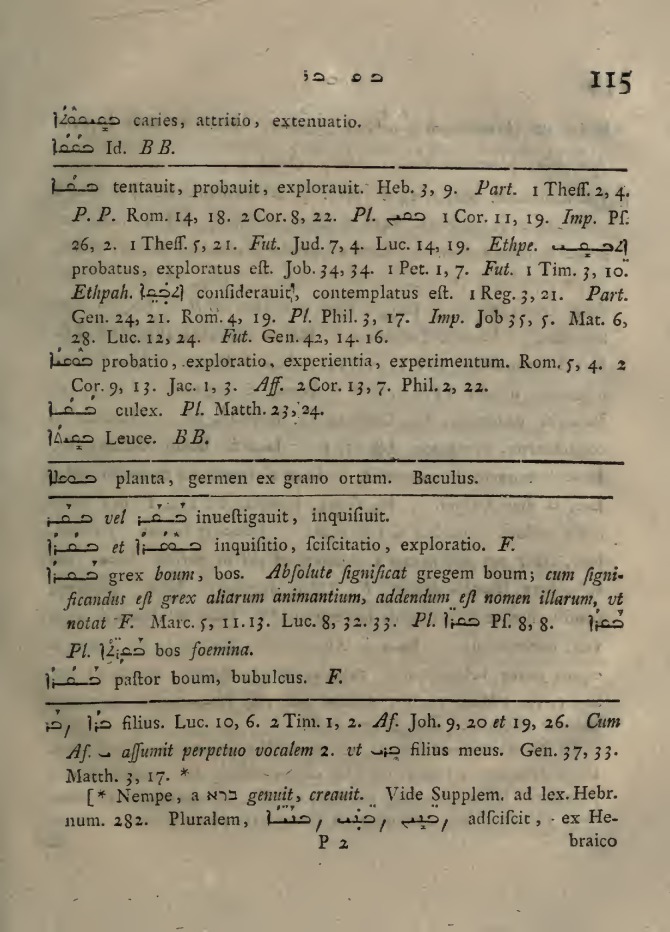 ܒܩ ܒܪ 115
caries, attritio, extenuatio.
ܒܩܩܐ Id. B B.
ܒܩܐ tentauit, probauit, explorauit. Heb. 3, 9. Part. 1 Theſſ. 2, 4.
P. P. Rom. 14, 18. 2 Cor. 8, 22. Pl. ܒܩܝܢ 1 Cor. 11, 19. Imp. Pſ.
26, 2. 1 Theſſ. 5, 21. Fut. Jud. 7, 4. Luc. 14, 19. Ethpe. ܐܬܒܩܝ
probatus, exploratus eſt. Job. 34, 34. 1 Pet. 1, 7. Fut. 1 Tim. 3, 10.
Ethpah. conſiderauit, contemplatus eſt. 1 Reg. 3, 21. Part.
Gen. 24, 21. Rom. 4, 19. Pl. Phil. 3, 17. Imp. Job 35, 5. Mat. 6,
28. Luc. 12, 24. Fut. Gen. 42, 14. 16.
probatio, exploratio, experientia, experimentum. Rom. 5, 4. 2
Cor. 9, 13. Jac. 1, 3. Aff. 2 Cor. 13, 7. Phil. 2, 22.
ܒܩܐ culex. Pl. Matth. 23, 24.
Leuce. B B.
ܒܩܘܠܐ planta, germen ex grano ortum. Baculus.
ܒܩܪ vel ܒܩܪ inueſtigauit, inquiſiuit.
ܒܩܪܐ et ܒܘܩܪܐ inquiſitio, ſciſcitatio, exploratio. F.
ܒܩܪܐ grex boum, bos. Abſolute ſignificat gregem boum; cum ſigni-
ficandus eſt grex aliarum animantium, addendum eſt nomen illarum, vt
notat F. Marc. 5, 11. 13. Luc. 8, 32. 33. Pl. ܒܩܪ̈ܐ Pſ. 8, 8. ܒܩܪܐ
Pl. ܒܩܪ̈ܬܐ bos foemina.
ܒܩܪܐ paſtor boum, bubulcus. F.
ܒܪ, ܒܪܐ filius. Luc. 10, 6. 2 Tim. 1, 2. Af. Joh. 9, 20 et 19, 26. Cum
Af. ܝ aſſumit perpetuo vocalem 2. vt ܒܪܝ filius meus. Gen. 37, 33.
Matth. 3, 17. *
[* Nempe, a ברא genuit, creauit. Vide Supplem. ad lex. Hebr.
num. 282. Pluralem, adſciſcit, ex He-
P 2 braico